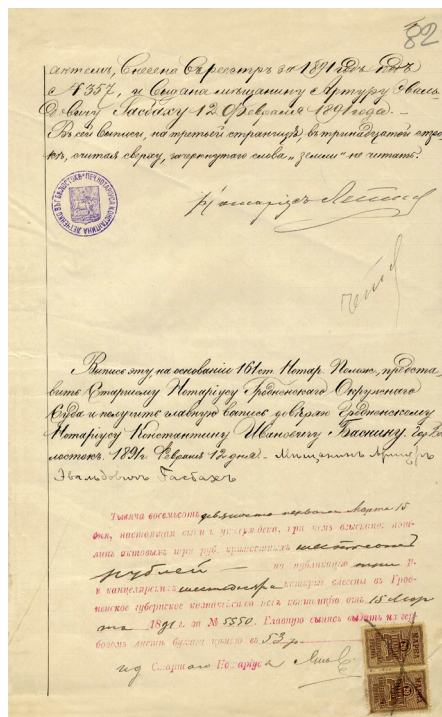 82
актомъ, внесена въ реестръ за 1891 годъ подъ
№ 357, и выдана мѣщанину Артуру Эваль-
довичу Гасбаху 12 Февраля 1891 года. –
Въ сей выписи, на третьей страницѣ, въ тринадцатой стро-
кѣ, считая сверху, зачеркнутаго слова „земли" не читать.
Нотаріусъ
Выпись эту, на основаніи 161 ст. Нотар. Полож., предста-
вить Старшему Нотаріусу Гродненскаго Окружнаго
Суда и получить главную выпись довѣряю Гродненскому
Нотаріусу Константину Ивановичу Баснину. Гор. Бѣ-
лостокъ. 1891 г. Февраля 12 дня. – Мѣщанинъ Артуръ
Эвальдовичъ Гасбахъ
Тысяча восемьсотъ девяносто перваго Марта 15
дня, настоящая выпись утверждена, при чемъ взыскано: пош-
линъ актовыхъ три руб. крѣпостныхъ шестьсотъ
рублей — на публикацію три р.
и канцелярскихъ которыя внесены въ Грод-
ненское губернское казначейство подъ квитанцію отъ 15 Мар-
та 1891 г. за № 5550. Главную выпись выдать на гер-
бовомъ листѣ бумаги цѣною въ 53 р.
и д Старшаго Нотаріуса